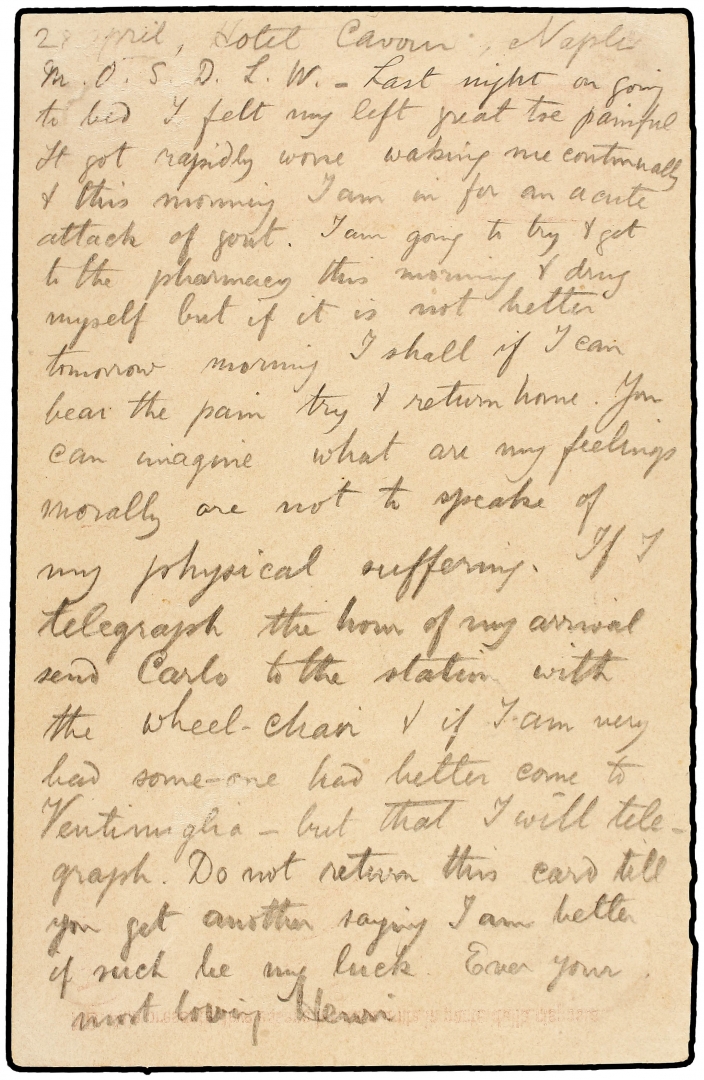 April, Hotel Cavour, Naples
M. O. S. D. L. W. – Last night on going
to bed I felt my left great toe painful
It got rapidly worse waking me continually
& this morning I am in for an acute
attack of gout. I am going to try & get
to the pharmacy this morning & drug
myself but if it is not better
tomorrow morning I shall if I can
bear the pain try & return home. You
can imagine what are my feelings
morally are not to speake of
my physical suffering. If I
telegraph the hour of my arrival
send Carlo to the station with
the wheel-chair & if I am very
bad some-one had better come to
Ventimiglia – but that I will tele-
graph. Do not return this card till
you get another saying I am better
if such be my luck. Ever your
most loving Henri